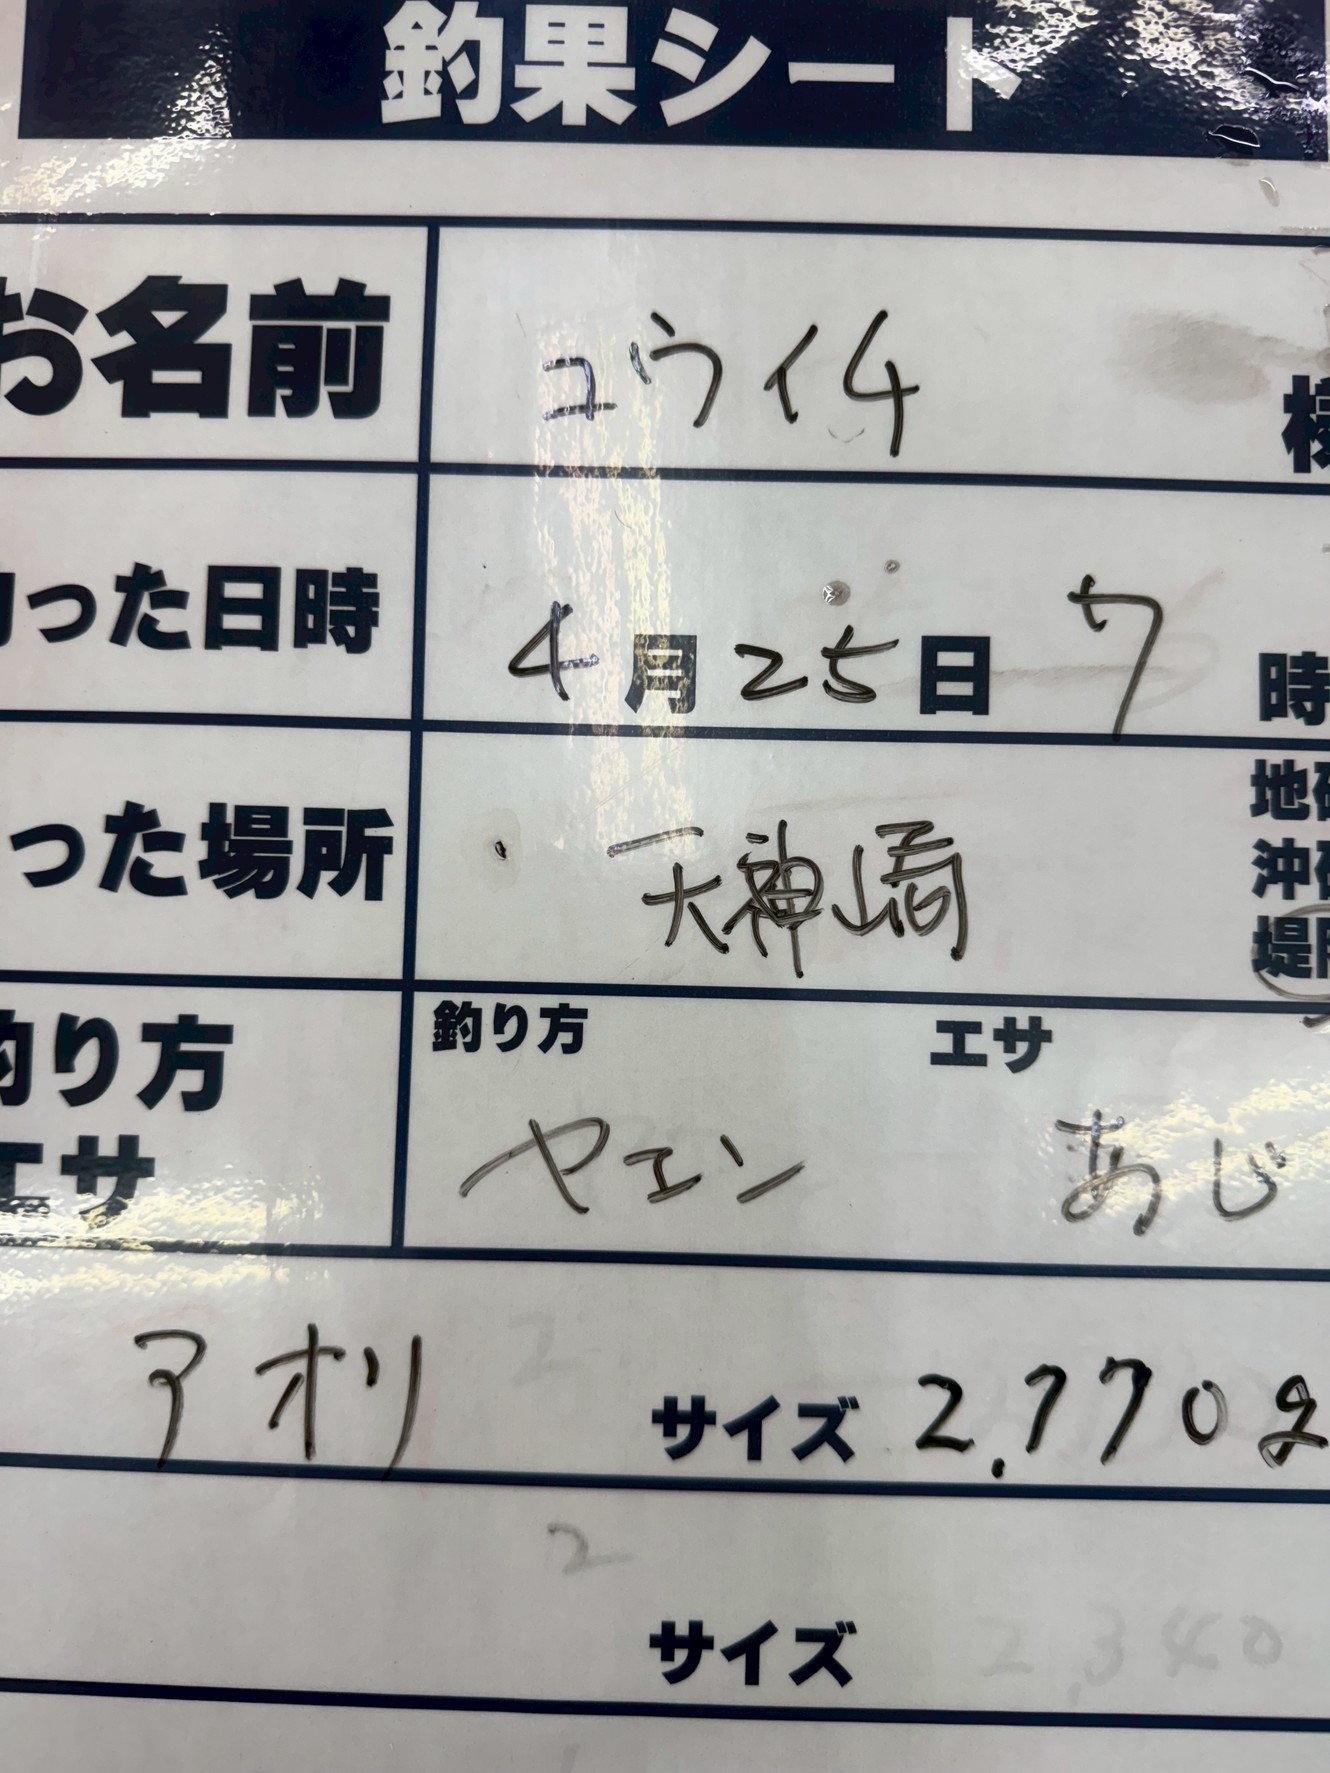 釣果シート
お名前 ユウイチ 様
釣った日時 4月25日 7時
地磯
釣った場所 天神崎 沖磯
堤防
釣り方 エサ
釣り方
エサ ヤエン あじ
アオリ サイズ 2.770g
2
サイズ 2.340